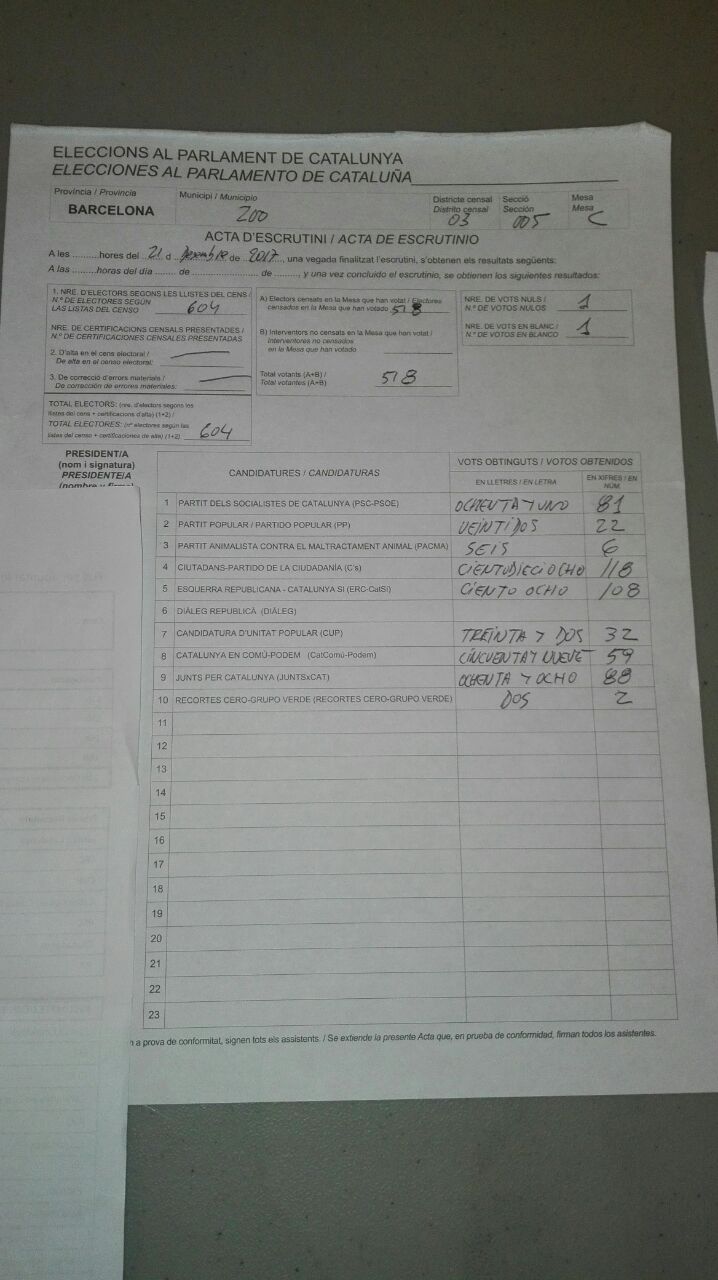 ELECCIONS AL PARLAMENT DE CATALUNYA
ELECCIONES AL PARLAMENTO DE CATALUÑA
Província / Provincia Municipi / Municipio Districte censal Secció Mesa
Distrito censal Sección Mesa
BARCELONA 200 03 005 C
ACTA D'ESCRUTINI / ACTA DE ESCRUTINIO
A les ..........hores del ..21.. d ........ de ..2017..., una vegada finalitzat l'escrutini, s'obtenen els resultats següents:
A las .........horas del día ....... de ........................ de ........, y una vez concluido el escrutinio, se obtienen los siguientes resultados:
1. NRE. D'ELECTORS SEGONS LES LLISTES DEL CENS /
N.º DE ELECTORES SEGÚN
LAS LISTAS DEL CENSO 604
NRE. DE CERTIFICACIONS CENSALS PRESENTADES /
N.º DE CERTIFICACIONES CENSALES PRESENTADAS
2. D'alta en el cens electoral /
De alta en el censo electoral:
3. De correcció d'errors materials /
De corrección de errores materiales:
TOTAL ELECTORS: (nre. d'electors segons les
llistes del cens + certificacions d'alta) (1+2) /
TOTAL ELECTORES: (nº electores según las
listas del censo + certificaciones de alta) (1+2) 604
A) Electors censats en la Mesa que han votat / Electores
censados en la Mesa que han votado 518
B) Interventors no censats en la Mesa que han votat /
Interventores no censados
en la Mesa que han votado
Total votants (A+B) /
Total votantes (A+B) 518
NRE. DE VOTS NULS /
N.º DE VOTOS NULOS 1
NRE. DE VOTS EN BLANC /
N.º DE VOTOS EN BLANCO 1
PRESIDENT/A
(nom i signatura)
PRESIDENTE/A
(nombre y firma)
CANDIDATURES / CANDIDATURAS VOTS OBTINGUTS / VOTOS OBTENIDOS
EN LLETRES / EN LETRA EN XIFRES / EN NÚM.
1 PARTIT DELS SOCIALISTES DE CATALUNYA (PSC-PSOE) OCHENTA Y UNO 81
2 PARTIT POPULAR / PARTIDO POPULAR (PP) VEINTIDOS 22
3 PARTIT ANIMALISTA CONTRA EL MALTRACTAMENT ANIMAL (PACMA) SEIS 6
4 CIUTADANS-PARTIDO DE LA CIUDADANÍA (C's) CIENTUDIECIOCHO 118
5 ESQUERRA REPUBLICANA - CATALUNYA SÍ (ERC-CatSí) CIENTO OCHO 108
6 DIÀLEG REPUBLICÀ (DIÀLEG)
7 CANDIDATURA D'UNITAT POPULAR (CUP) TREINTA Y DOS 32
8 CATALUNYA EN COMÚ-PODEM (CatComú-Podem) CINCUENTA Y NUEVE 59
9 JUNTS PER CATALUNYA (JUNTSxCAT) OCHENTA Y OCHO 88
10 RECORTES CERO-GRUPO VERDE (RECORTES CERO-GRUPO VERDE) DOS 2
11
12
13
14
15
16
17
18
19
20
21
22
23
a prova de conformitat, signen tots els assistents. / Se extiende la presente Acta que, en prueba de conformidad, firman todos los asistentes.